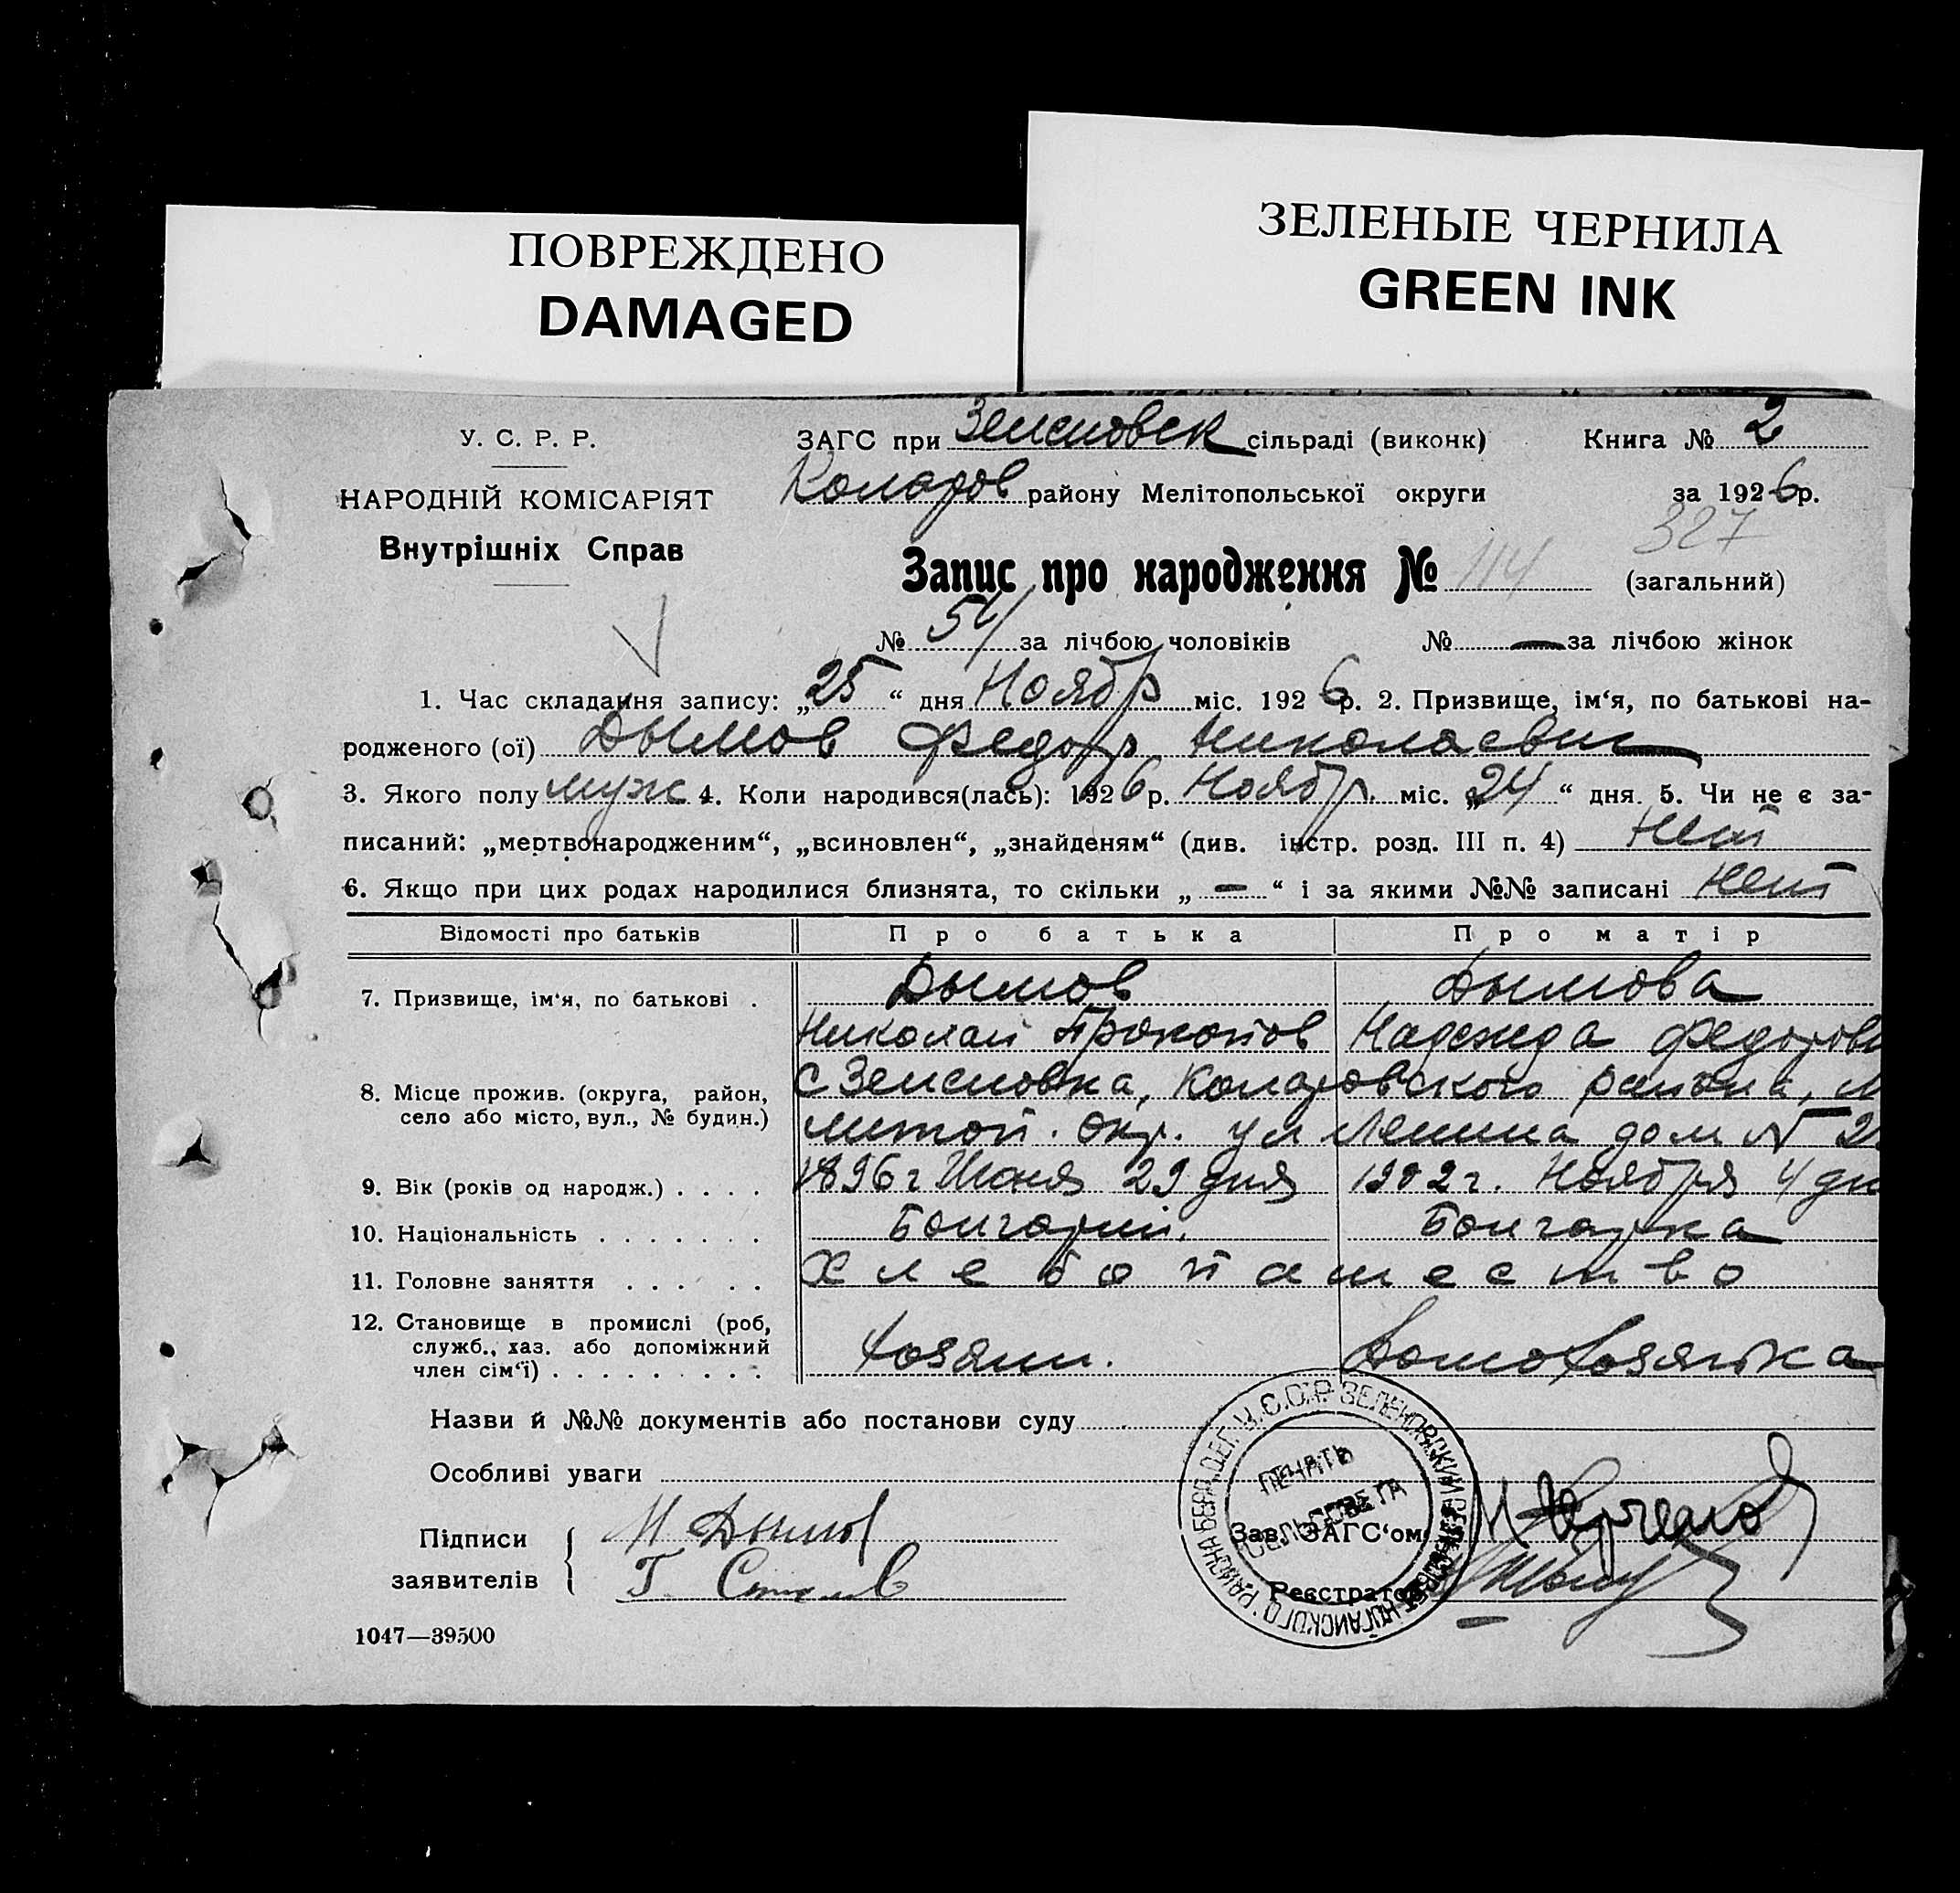 ПОВРЕЖДЕНО
DAMAGED
ЗЕЛЕНЫЕ ЧЕРНИЛА
GREEN INK
У. С. Р. Р.
НАРОДНІЙ КОМІСАРІЯТ
Внутрішніх Справ
ЗАГС при Зеленовск сільраді (виконк) Книга № 2
Коларов району Мелітопольської округи за 1926 р.
327
Запис про народження № 114 (загальний)
№ 54 за лічбою чоловіків № — за лічбою жінок
1. Час складання запису: „25“ дня Ноябр міс. 1926 р. 2. Призвище, ім‘я, по батькові на-
родженого (ої) Дымов Федор Николаевич
3. Якого полу муж 4. Коли народився(лась): 1926 р. Ноябр. міс. „24“ дня. 5. Чи не є за-
писаний: „мертвонародженим“, „всиновлен“, „знайденям“ (див. інстр. розд. III п. 4) Нет
6. Якщо при цих родах народилися близнята, то скільки „ — “ і за якими №№ записані нет
Відомості про батьків Про батька Про матір
7. Призвище, ім‘я, по батькові . Дымов Дымова
Николай Прокопов Надежда Федоров
8. Місце прожив. (округа, район, село або місто, вул., № будин.) с Зеленовка, Коларовского района, М
литоп. окр. ул Ленина дом № 2
9. Вік (років од народж.) . . . . 1896 г Июня 29 дня 1902 г. Ноября 4 дн
10. Національність . . . . . . . Болгарин. Болгарка
11. Головне заняття . . . . . . Хлебопашество
12. Становище в промислі (роб, служб., хаз. або допоміжний член сім‘ї) . . . . . . . . . Хозяин. Домохозяйка
Назви й №№ документів або постанови суду
Особливі уваги
Підписи заявителів
Н Дымов
Г.
Зав. ЗАГС‘ом
Реєстратор
У.С.С.Р. ЗЕЛЕНОВСКИЙ СЕЛЬСОВЕТ НОГАЙСКОГО РАЙОНА
ПЕЧАТЬ
СЕЛЬСОВЕТА
1047—39500